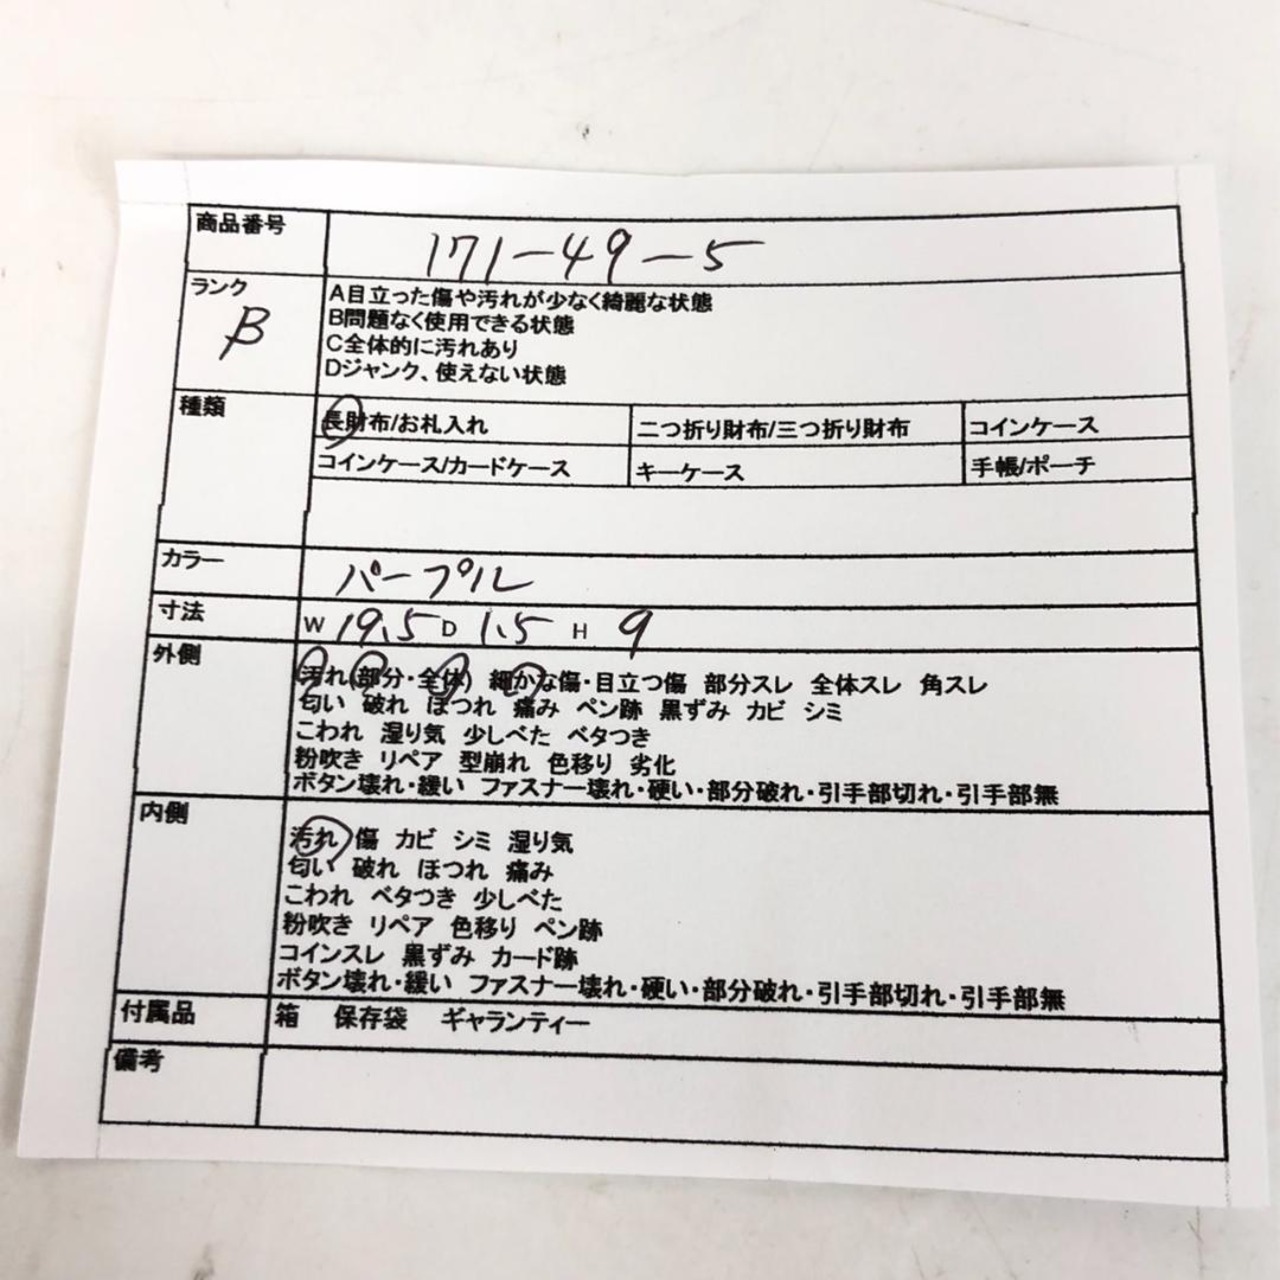 商品番号 171-49-5
ランク B
A目立った傷や汚れが少なく綺麗な状態
B問題なく使用できる状態
C全体的に汚れあり
Dジャンク、使えない状態
種類 長財布/お札入れ 二つ折り財布/三つ折り財布 コインケース
コインケース/カードケース キーケース 手帳/ポーチ
カラー パープル
寸法 W 19.5 D 1.5 H 9
外側
汚れ(部分・全体) 細かな傷・目立つ傷 部分スレ 全体スレ 角スレ
匂い 破れ ほつれ 痛み ペン跡 黒ずみ カビ シミ
こわれ 湿り気 少しべた ベタつき
粉吹き リペア 型崩れ 色移り 劣化
ボタン壊れ・緩い ファスナー壊れ・硬い・部分破れ・引手部切れ・引手部無
内側
汚れ 傷 カビ シミ 湿り気
匂い 破れ ほつれ 痛み
こわれ ベタつき 少しべた
粉吹き リペア 色移り ペン跡
コインスレ 黒ずみ カード跡
ボタン壊れ・緩い ファスナー壊れ・硬い・部分破れ・引手部切れ・引手部無
付属品 箱 保存袋 ギャランティー
備考